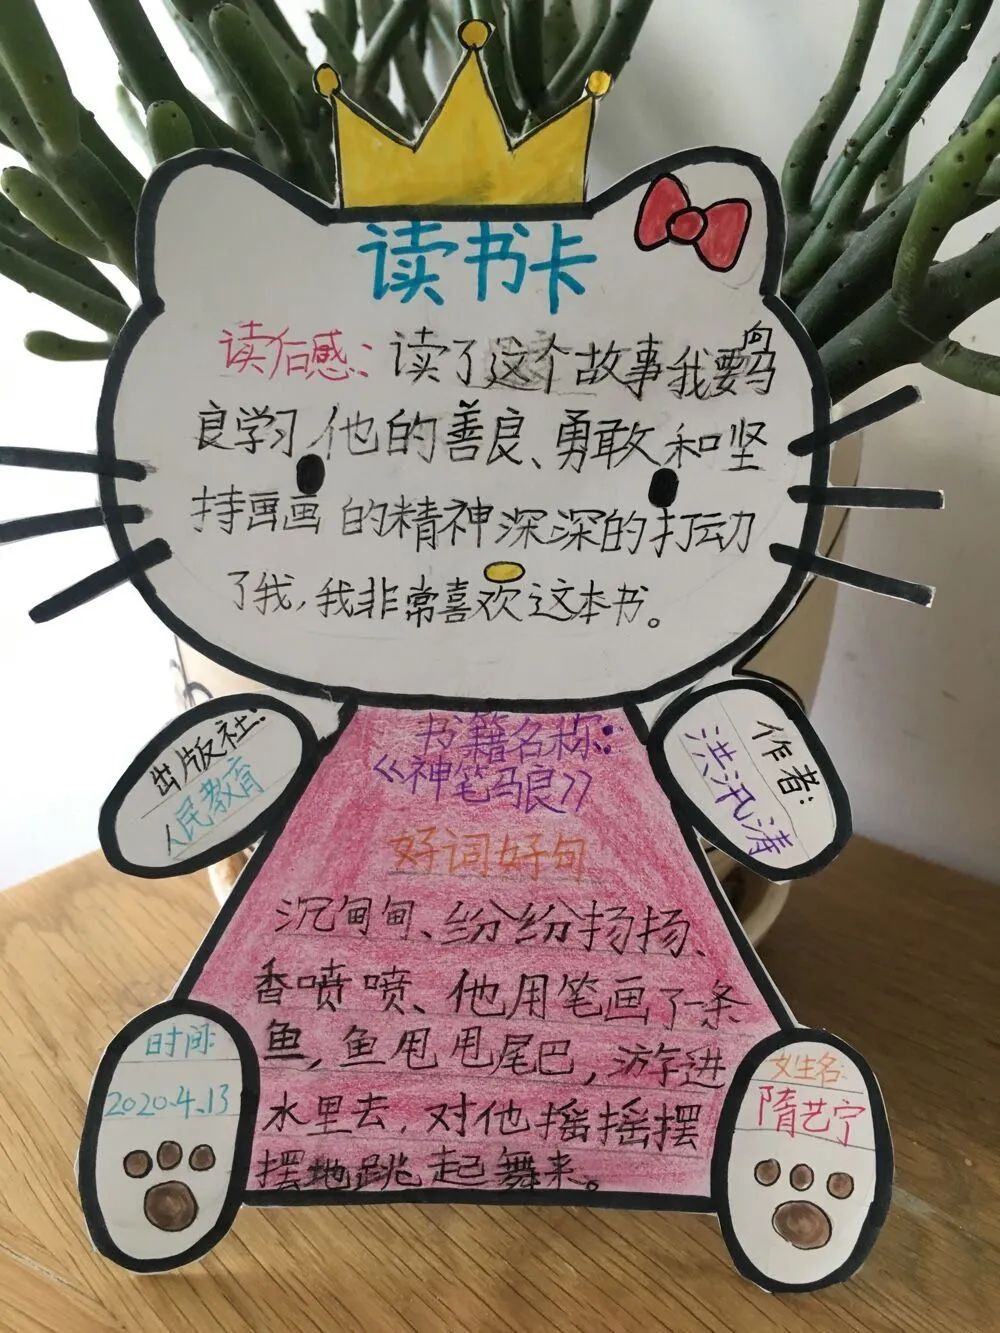 读书卡
读后感：读了这个故事我要向马
良学习他的善良、勇敢和坚
持画画的精神深深的打动
了我，我非常喜欢这本书。
出版社：
人民教育
书籍名称：
《神笔马良》
作者：
洪汛涛
好词好句
沉甸甸、纷纷扬扬、
香喷喷、他用笔画了一条
鱼，鱼甩甩尾巴，游进
水里去，对他摇摇摆
摆地跳起舞来。
时间：
2020.4.13
姓名：
隋艺宁